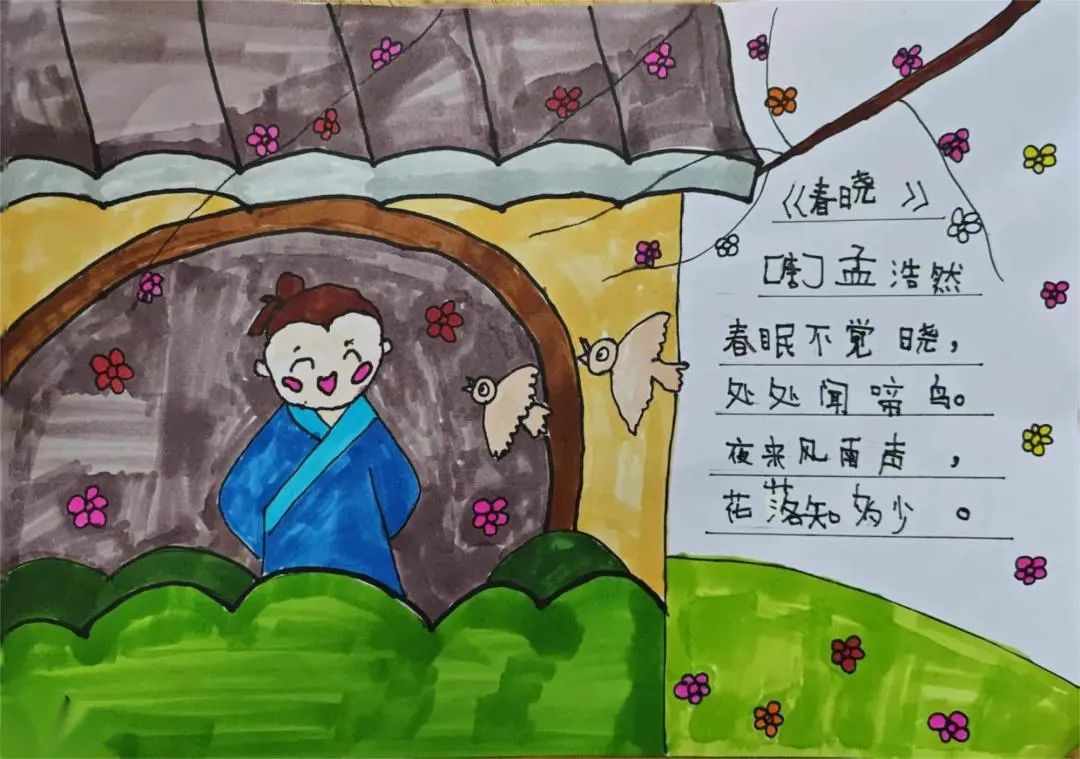 《春晓》
[唐]孟浩然
春眠不觉晓，
处处闻啼鸟。
夜来风雨声，
花落知多少。